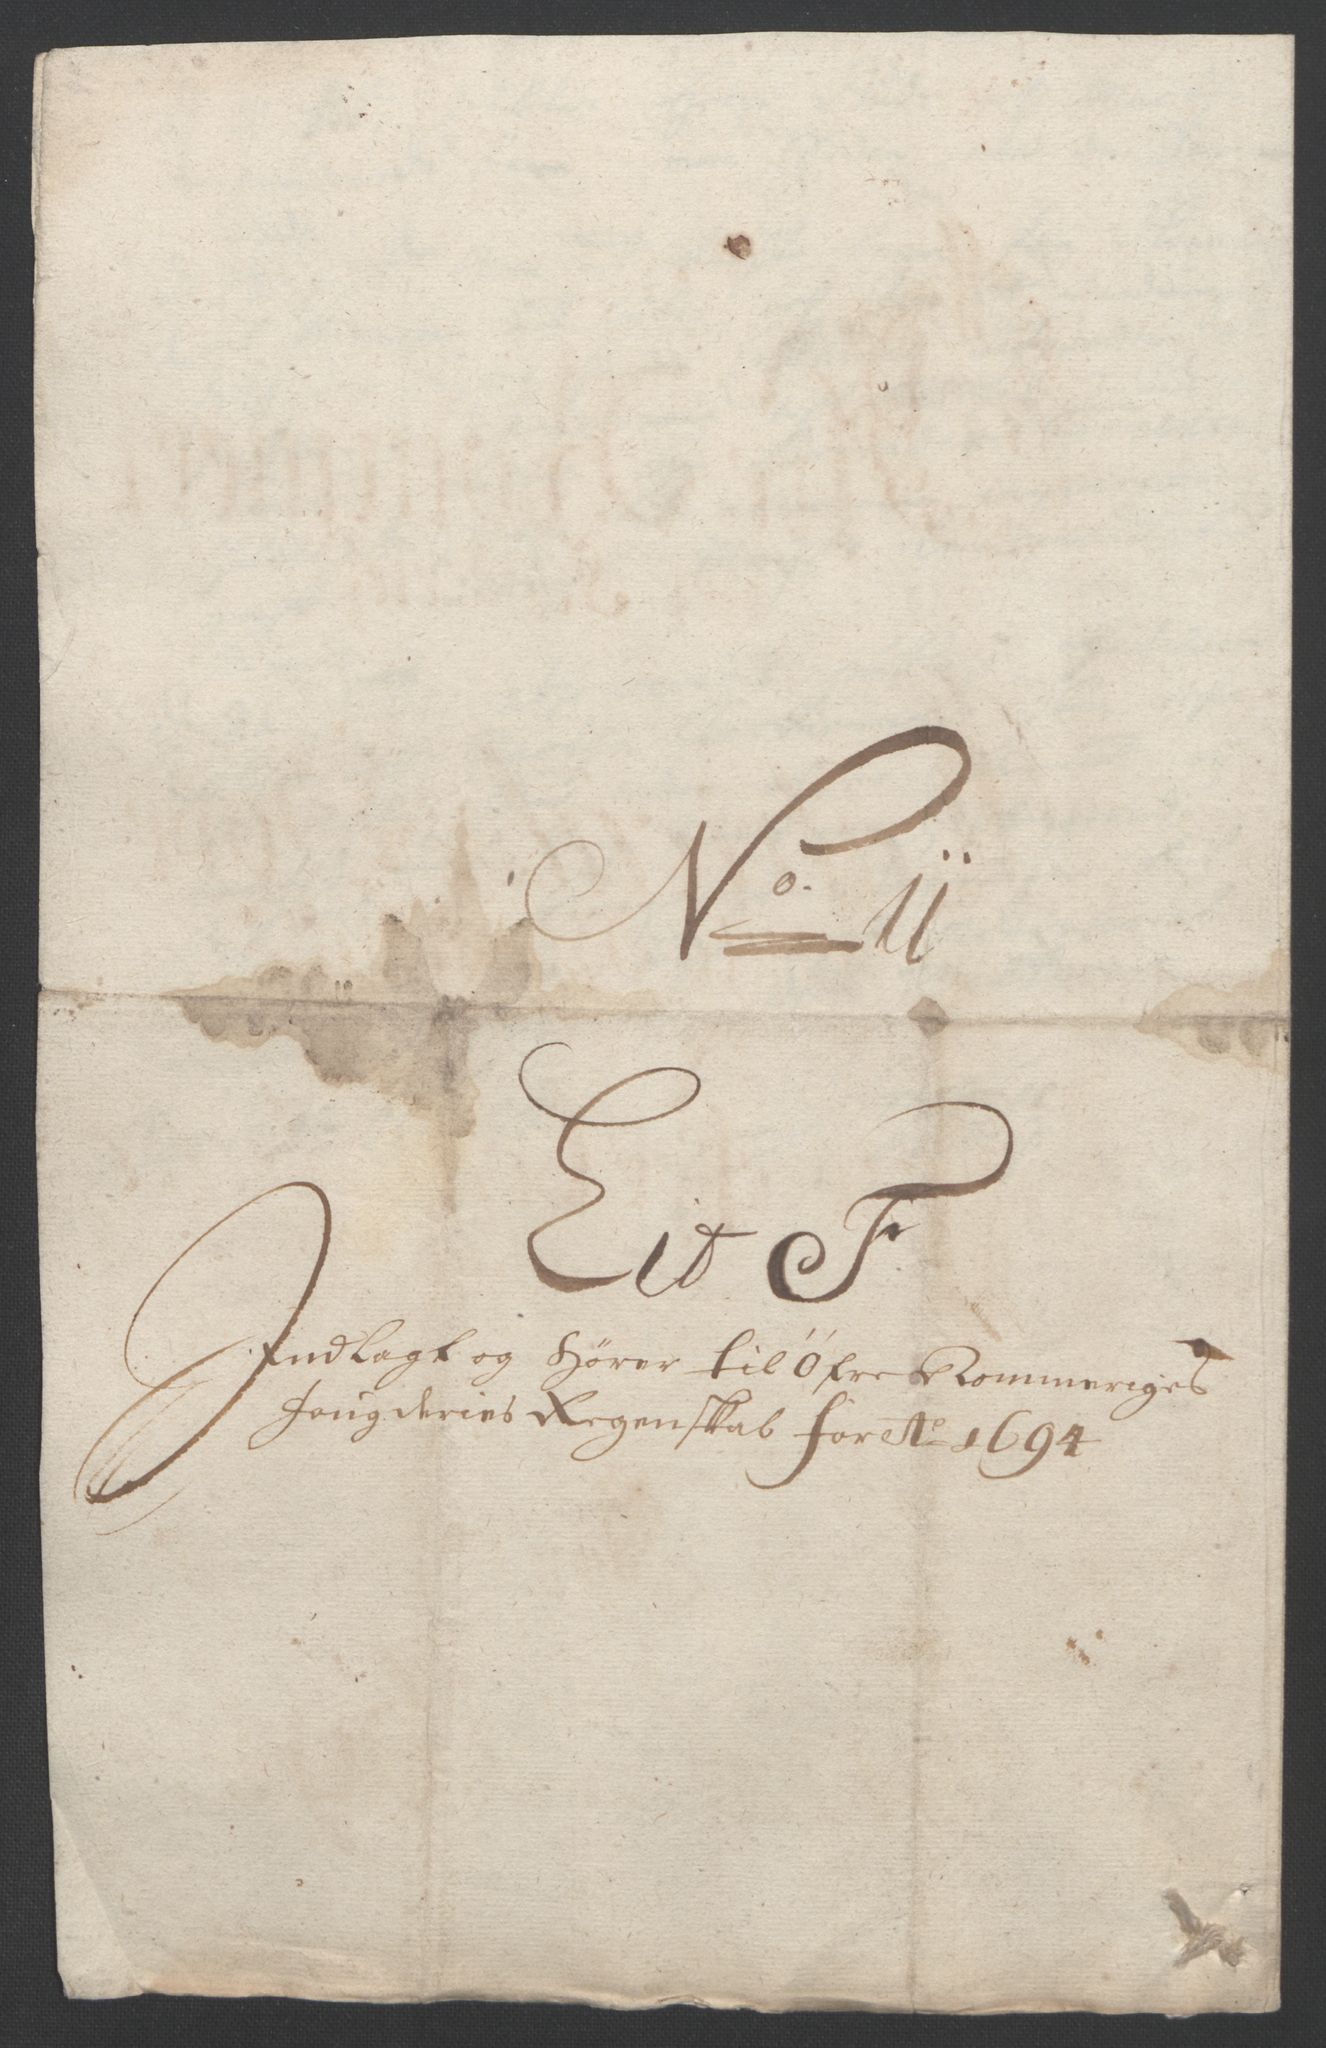 No. 11
Lit F
Indlagt og Hører til Øfre Rommeriges
fougderies Regenskab for Ao 1694